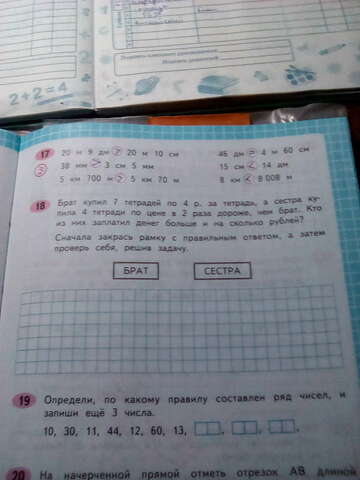 2+2=4
17 20 м 9 дм > 20 м 10 см 46 дм = 4 м 60 см
38 мм > 3 см 5 мм 15 см < 14 дм
5 км 700 м > 5 км 70 м 8 км < 8 008 м
18 Брат купил 7 тетрадей по 4 р. за тетрадь, а сестра ку-
пила 4 тетради по цене в 2 раза дороже, чем брат. Кто
из них заплатил денег больше и на сколько рублей?
Сначала закрась рамку с правильным ответом, а затем
проверь себя, решив задачу.
БРАТ СЕСТРА
19 Определи, по какому правилу составлен ряд чисел, и
запиши ещё 3 числа.
10, 30, 11, 44, 12, 60, 13, , , .
20 На начерченной прямой отметь отрезок АВ длиной